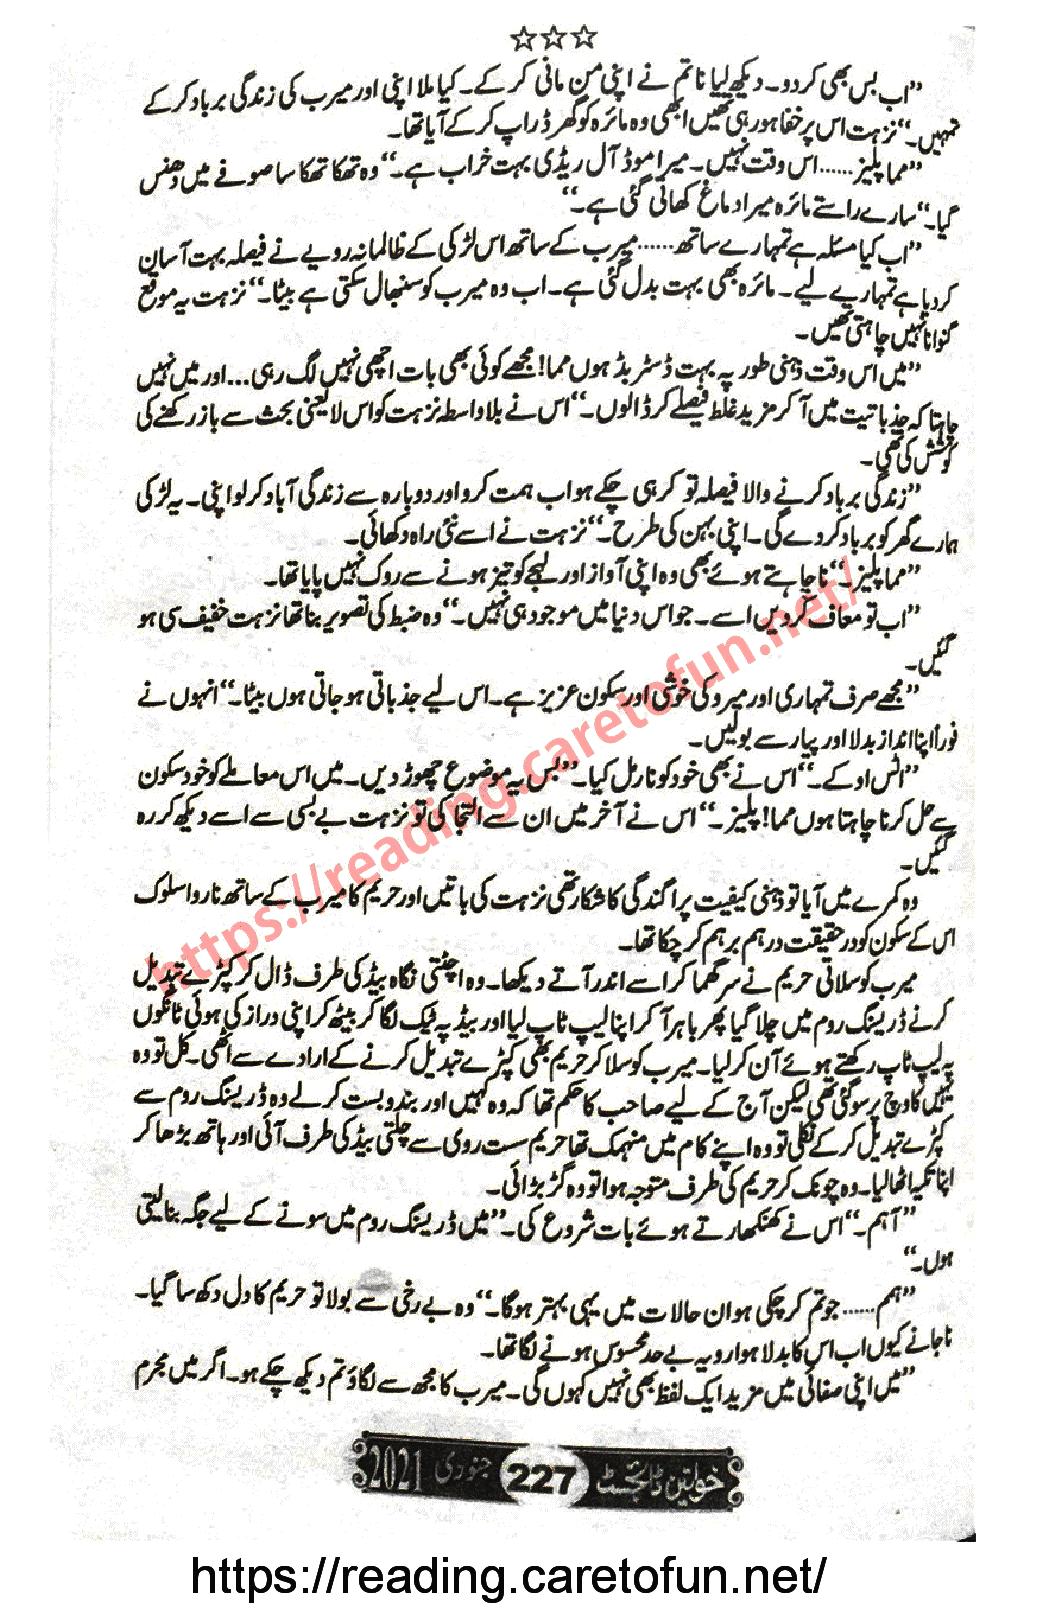 ☆☆☆
”اب بس بھی کر دو۔ دیکھ لیا نا تم نے اپنی من مانی کر کے۔ کیا ملا اپنی اور میرب کی زندگی برباد کر کے
تمہیں۔“ نزہت اس پر خفا ہو رہی تھیں ابھی وہ مائرہ کو گھر ڈراپ کر کے آیا تھا۔
”مما پلیز...... اس وقت نہیں۔ میرا موڈ آل ریڈی بہت خراب ہے۔“ وہ تھکا تھکا سا صوفے میں دھنس
گیا۔ ”سارے راستے مائرہ میرا دماغ کھاتی گئی ہے۔“
”اب کیا مسئلہ ہے تمہارے ساتھ...... میرب کے ساتھ اس لڑکی کے ظالمانہ رویے نے فیصلہ بہت آسان
کر دیا ہے تمہارے لیے۔ مائرہ بھی بہت بدل گئی ہے۔ اب وہ میرب کو سنبھال سکتی ہے بیٹا۔“ نزہت یہ موقع
گنوانا نہیں چاہتی تھیں۔
”میں اس وقت ذہنی طور پہ بہت ڈسٹربڈ ہوں مما! مجھے کوئی بھی بات اچھی نہیں لگ رہی... اور میں نہیں
چاہتا کہ جذباتیت میں آ کر مزید غلط فیصلے کر ڈالوں۔“ اس نے بلاواسطہ نزہت کو اس لایعنی بحث سے باز رکھنے کی
کوشش کی تھی۔
”زندگی برباد کرنے والا فیصلہ تو کر ہی چکے ہو اب ہمت کرو اور دوبارہ سے زندگی آباد کر لو اپنی۔ یہ لڑکی
ہمارے گھر کو برباد کر دے گی۔ اپنی بہن کی طرح۔“ نزہت نے اسے نئی راہ دکھائی۔
”مما پلیز۔“ نا چاہتے ہوئے بھی وہ اپنی آواز اور لہجے کو تیز ہونے سے روک نہیں پایا تھا۔
”اب تو معاف کر دیں اسے۔ جو اس دنیا میں موجود ہی نہیں۔“ وہ ضبط کی تصویر بنا تھا نزہت خفیف سی ہو
گئیں۔
”مجھے صرف تمہاری اور میرو کی خوشی اور سکون عزیز ہے۔ اس لیے جذباتی ہو جاتی ہوں بیٹا۔“ انہوں نے
فوراً اپنا انداز بدلا اور پیار سے بولیں۔
”اٹس اوکے۔“ اس نے بھی خود کو نارمل کیا۔ ”بس یہ موضوع چھوڑ دیں۔ میں اس معاملے کو خود سکون
سے حل کرنا چاہتا ہوں مما! پلیز۔“ اس نے آخر میں ان سے التجا کی تو نزہت بے بسی سے اسے دیکھ کر رہ
گئیں۔
وہ کمرے میں آیا تو ذہنی کیفیت پراگندگی کا شکار تھی نزہت کی باتیں اور حریم کا میرب کے ساتھ ناروا سلوک
اس کے سکون کو درحقیقت درہم برہم کر چکا تھا۔
میرب کو سلاتی حریم نے سر گھما کر اسے اندر آتے دیکھا۔ وہ اچٹتی نگاہ بیڈ کی طرف ڈال کر کپڑے تبدیل
کرنے ڈریسنگ روم میں چلا گیا پھر باہر آ کر اپنا لیپ ٹاپ لیا اور بیڈ پہ ٹیک لگا کر بیٹھ کر اپنی دراز کی ہوئی ٹانگوں
پہ لیپ ٹاپ رکھتے ہوئے آن کر لیا۔ میرب کو سلا کر حریم بھی کپڑے تبدیل کرنے کے ارادے سے اٹھی۔ کل تو وہ
یہیں کاؤچ پر سو گئی تھی لیکن آج کے لیے صاحب کا حکم تھا کہ وہ کہیں اور بندوبست کر لے وہ ڈریسنگ روم سے
کپڑے تبدیل کر کے نکلی تو وہ اپنے کام میں منہمک تھا حریم ست روی سے چلتی بیڈ کی طرف آئی اور ہاتھ بڑھا کر
اپنا تکیا اٹھا لیا۔ وہ چونک کر حریم کی طرف متوجہ ہوا تو وہ گڑبڑائی۔
”آہم۔“ اس نے کھنکھارتے ہوئے بات شروع کی۔ ”میں ڈریسنگ روم میں سونے کے لیے جگہ بنا لیتی
ہوں۔“
”ہم...... جو تم کر چکی ہو ان حالات میں یہی بہتر ہوگا۔“ وہ بے رخی سے بولا تو حریم کا دل دکھ سا گیا۔
نا جانے کیوں اب اس کا بدلا ہوا رویہ بے حد محسوس ہونے لگا تھا۔
”میں اپنی صفائی میں مزید ایک لفظ بھی نہیں کہوں گی۔ میرب کا مجھ سے لگاؤ تم دیکھ چکے ہو۔ اگر میں مجرم
خواتین ڈائجسٹ 227 جنوری 2021
https://reading.caretofun.net/
https://reading.caretofun.net/